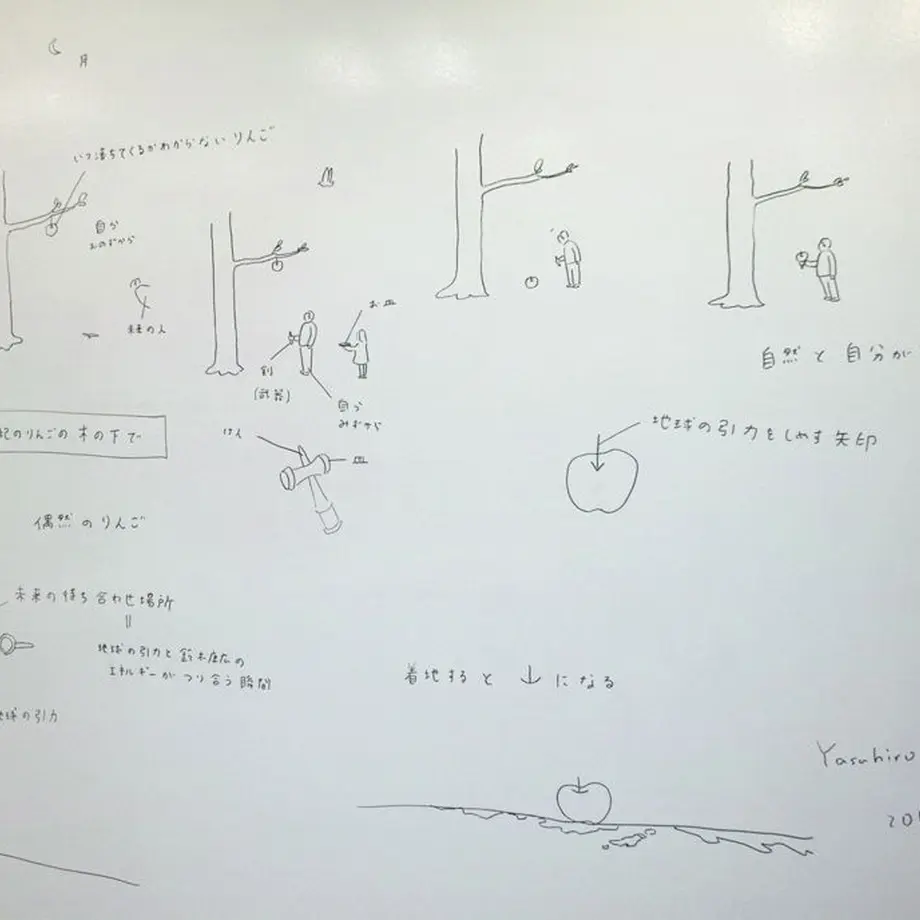 月
いつ落ちてくるかわからないりんご
自分
おのずから
お皿
剣
(武器)
自分
みずから
けん
皿
自然と自分が
地球の引力をしめす矢印
紀のりんごの木の下で
偶然のりんご
未来の待ち合わせ場所
||
地球の引力と鈴木康広の
エネルギーがつり合う瞬間
地球の引力
着地すると↓になる
Yasuhiro
201